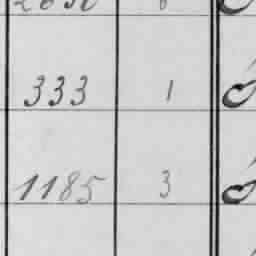 333 1
1185 3